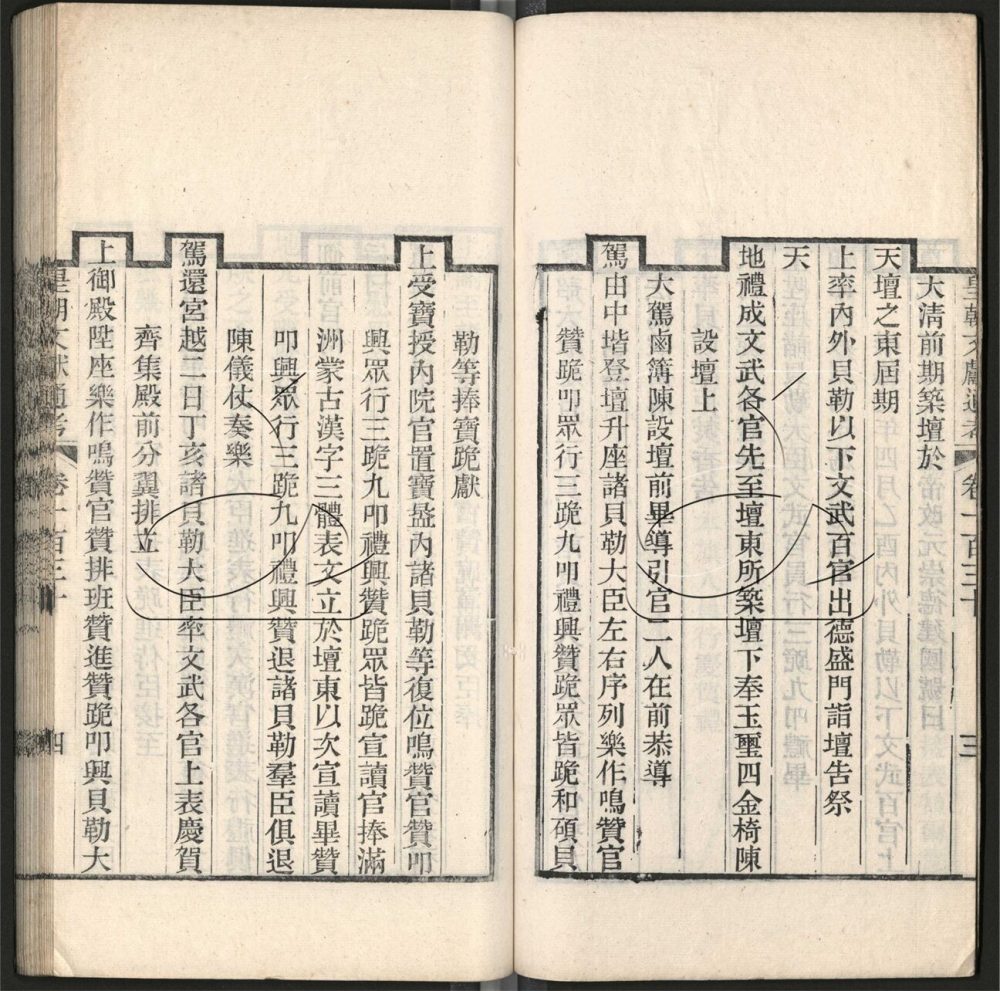 皇朝文獻通考 卷一百三十 三
大清前期築壇於
天壇之東屆期
上率內外貝勒以下文武百官出德盛門詣壇告祭
天
地禮成文武各官先至壇東所築壇下奉玉璽四金椅陳
設壇上
大駕鹵簿陳設壇前畢導引官二人在前恭導
駕由中堦登壇升座諸貝勒大臣左右序列樂作鳴贊官
贊跪叩眾行三跪九叩禮興贊跪眾皆跪和碩貝
勒等捧寶跪獻
上受寶授內院官置寶盝內諸貝勒等復位鳴贊官贊叩
興眾行三跪九叩禮興贊跪眾皆跪宣讀官捧滿
洲蒙古漢字三體表文立於壇東以次宣讀畢贊
叩興眾行三跪九叩禮興贊退諸貝勒羣臣俱退
陳儀仗奏樂
駕還宮越二日丁亥諸貝勒大臣率文武各官上表慶賀
齊集殿前分翼排立
上御殿陞座樂作鳴贊官贊排班贊進贊跪叩興貝勒大
皇朝文獻通考 卷一百三十 四